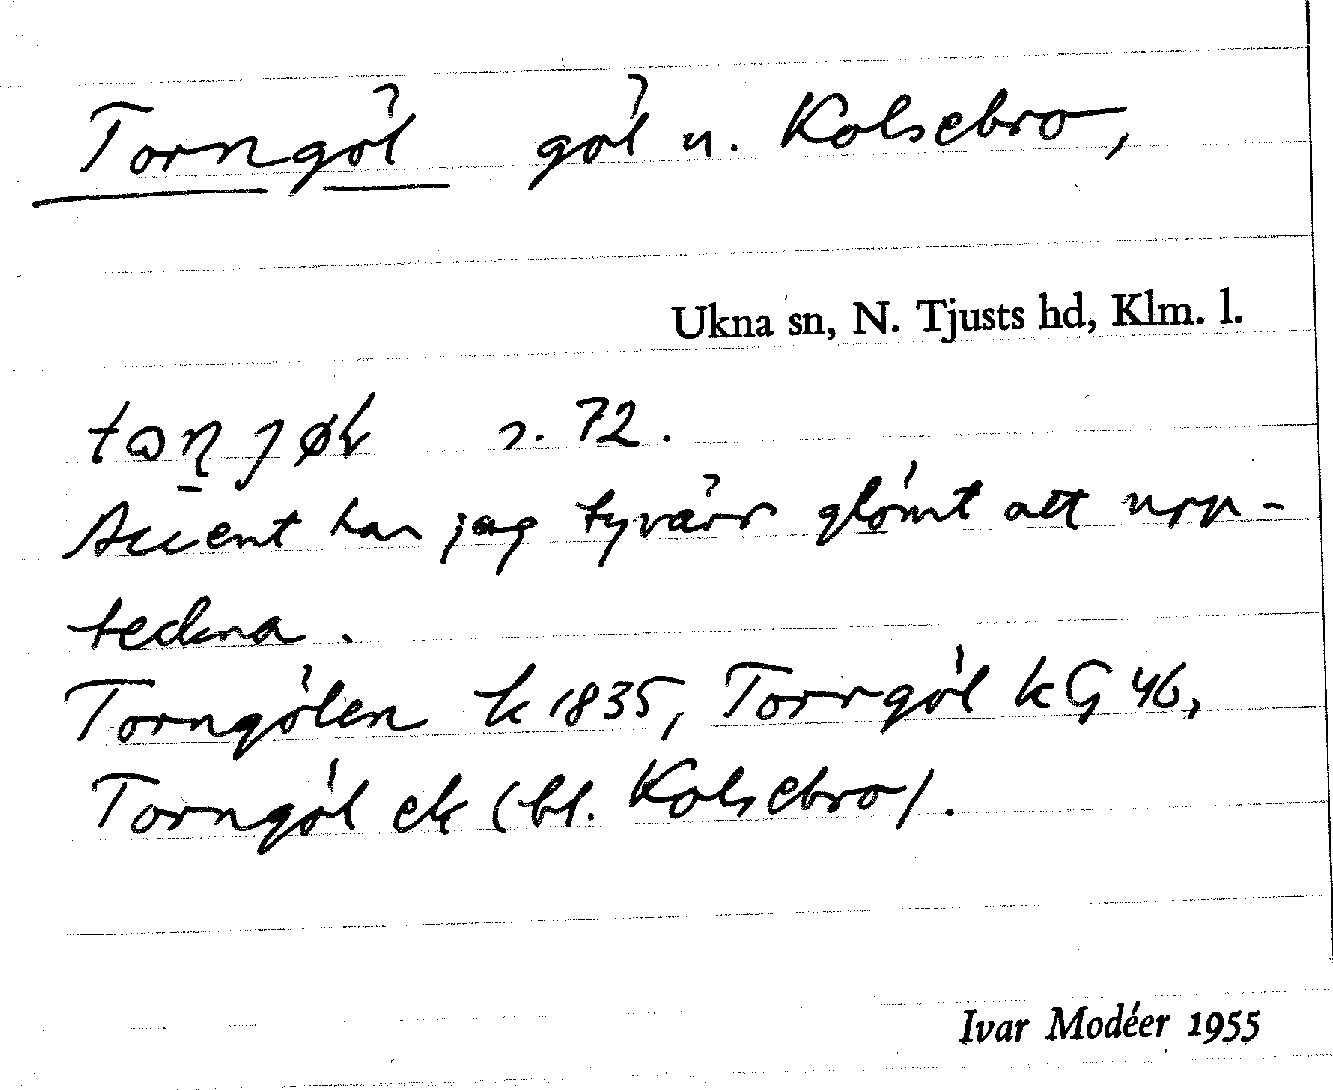 Torngöl göl u. Kolsebro,
Ukna sn, N. Tjusts hd, Klm. l.
s. 72.
Accent har jag tyvärr glömt att upp-
teckna.
Torngölen k 1835, Torrgöl k G 46,
Torngöl ek (bl. Kolsebro).
Ivar Modéer 1955